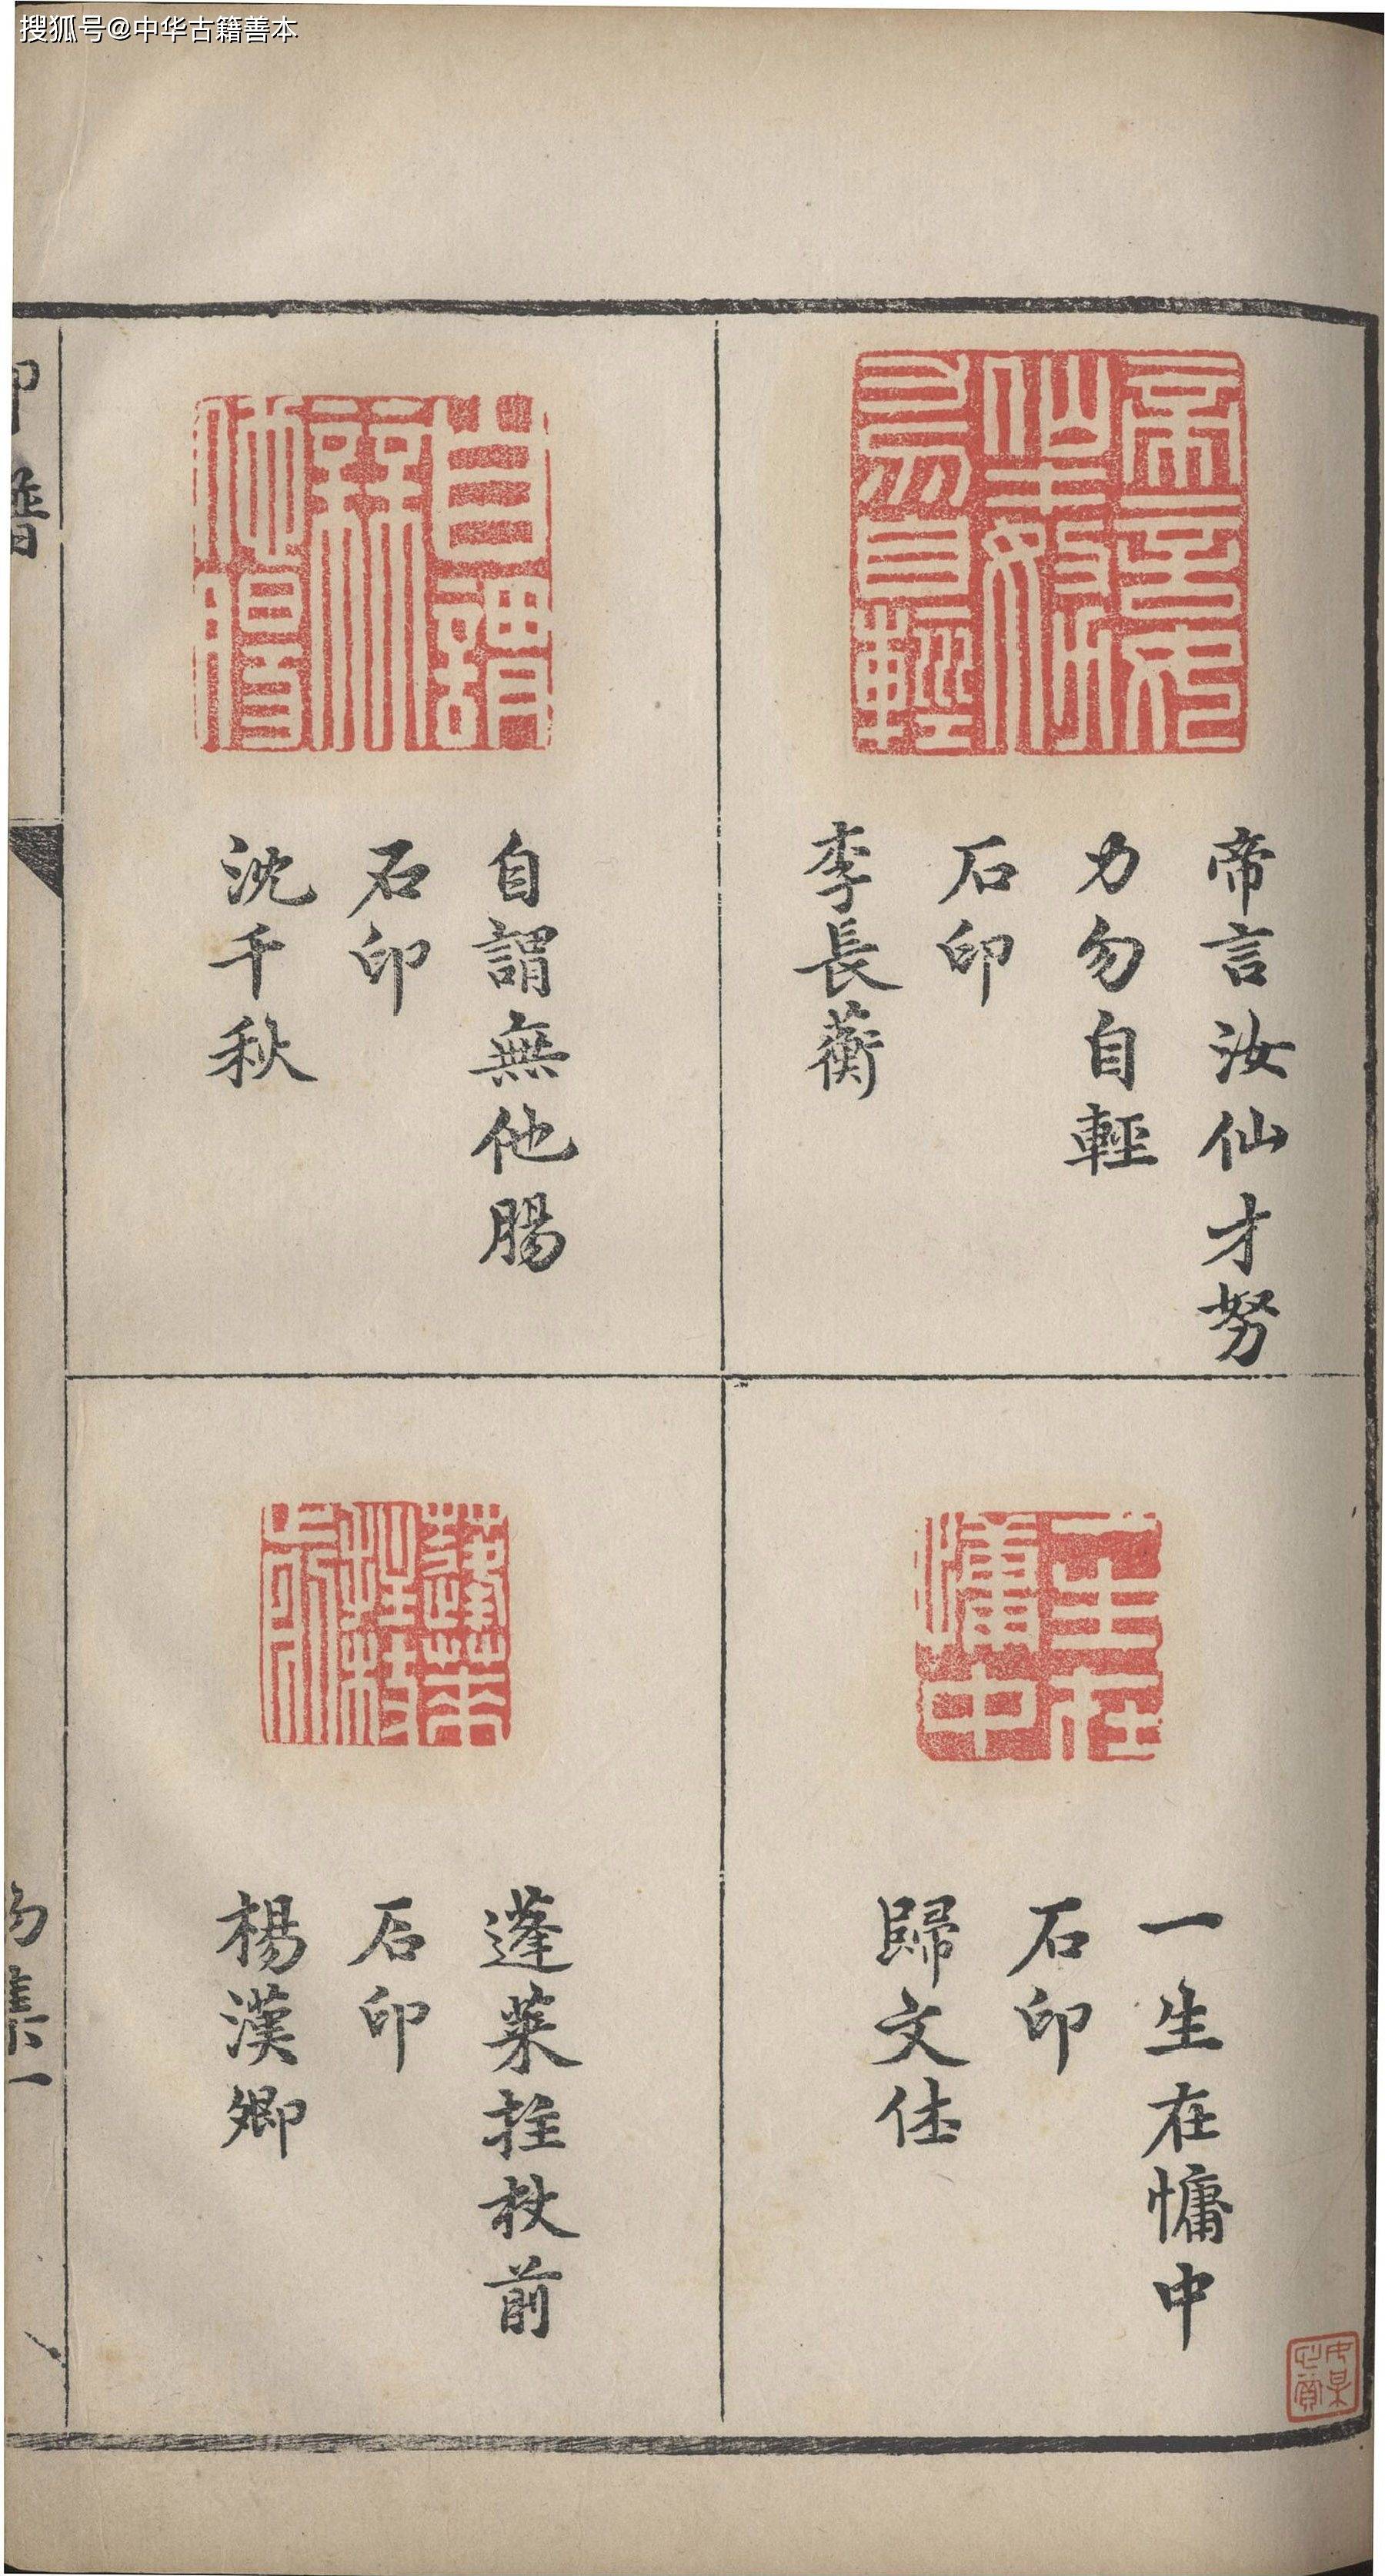 搜狐号@中华古籍善本
帝言汝仙才努
力勿自輕
石印
李長蘅
一生在慵中
石印
歸文休
自謂無他腸
石印
沈千秋
蓬萊拄杖前
石印
楊漢卿
印譜
集一